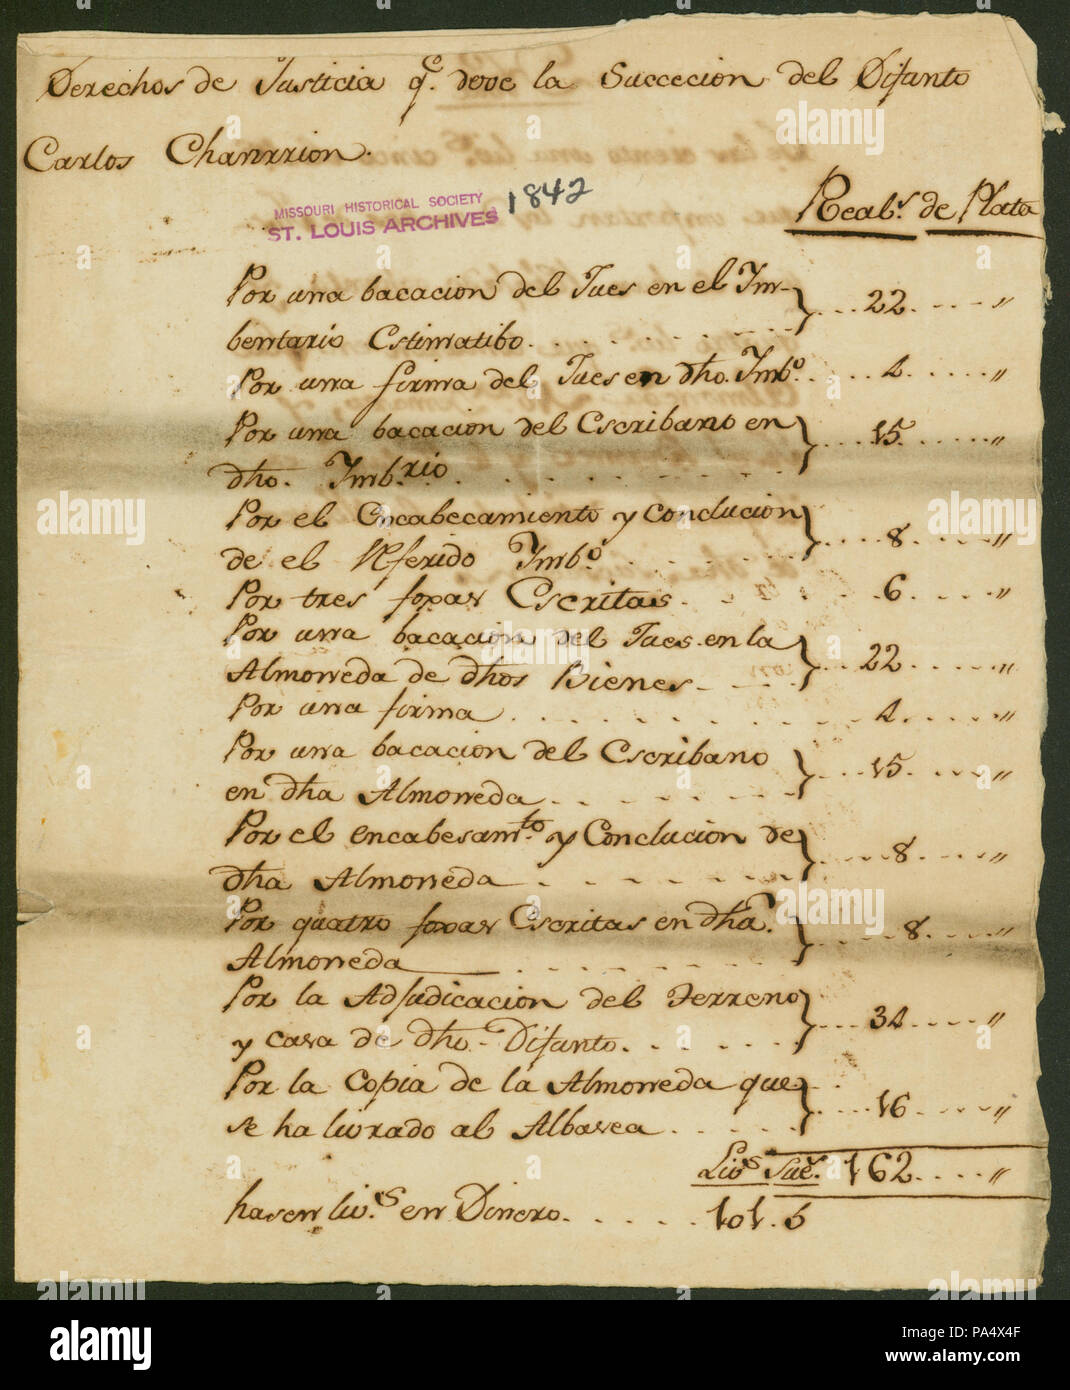 Derechos de Justicia q.e deve la Succecion del Difunto
Carlos Chanrrion.
MISSOURI HISTORICAL SOCIETY
ST. LOUIS ARCHIVES
1842
Real.s de Plata
Por una bacacion del Jues en el Im-
bentario Estimatibo. . . . . . . 22 . . . . "
Por una firma del Jues en dho. Imb.o . . . . 4 . . . . "
Por una bacacion del Escribano en
dho. Imb.rio . . . . . . . 15 . . . . "
Por el Encabecamiento y Conclucion
de el Referido Imb.o . . . . . . 8 . . . . "
Por tres foxas Escritas . . . . . 6 . . . . "
Por una bacacion del Jues en la
Almoneda de dhos Bienes . . . . 22 . . . . "
Por una firma . . . . . . . . 4 . . . . "
Por una bacacion del Escribano
en dha Almoneda . . . . . . 15 . . . . "
Por el encabesam.to y Conclucion de
dha Almoneda . . . . . . . 8 . . . . "
Por quatro foxas Escritas en dha.
Almoneda . . . . . . . 8 . . . . "
Por la Adjudicacion del Terreno
y casa de dho. Difunto. . . . . . 34 . . . . "
Por la Copia de la Almoneda que
se ha livrado al Albasea . . . . . 16 . . . . "
162 . . . . "
hasen liv.s en Dinero. . . . . . 101. 5
alamy
PA4X4F
www.alamy.com